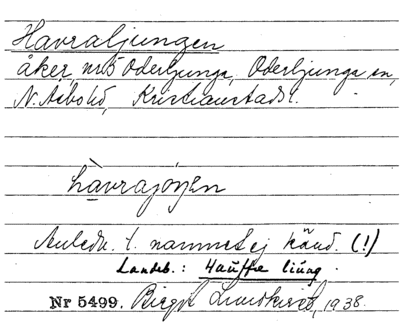 Havraljungen
åker, nr 5 Oderljunga, Oderljunga sn,
N. Åsbo hd, Kristianstads l.
hàvrajóŋen
Anledn. t. namnet ej känd. (!)
Landtb.: Hauffre liüng.
Nr 5499. Birgit Lundkvist, 1938.